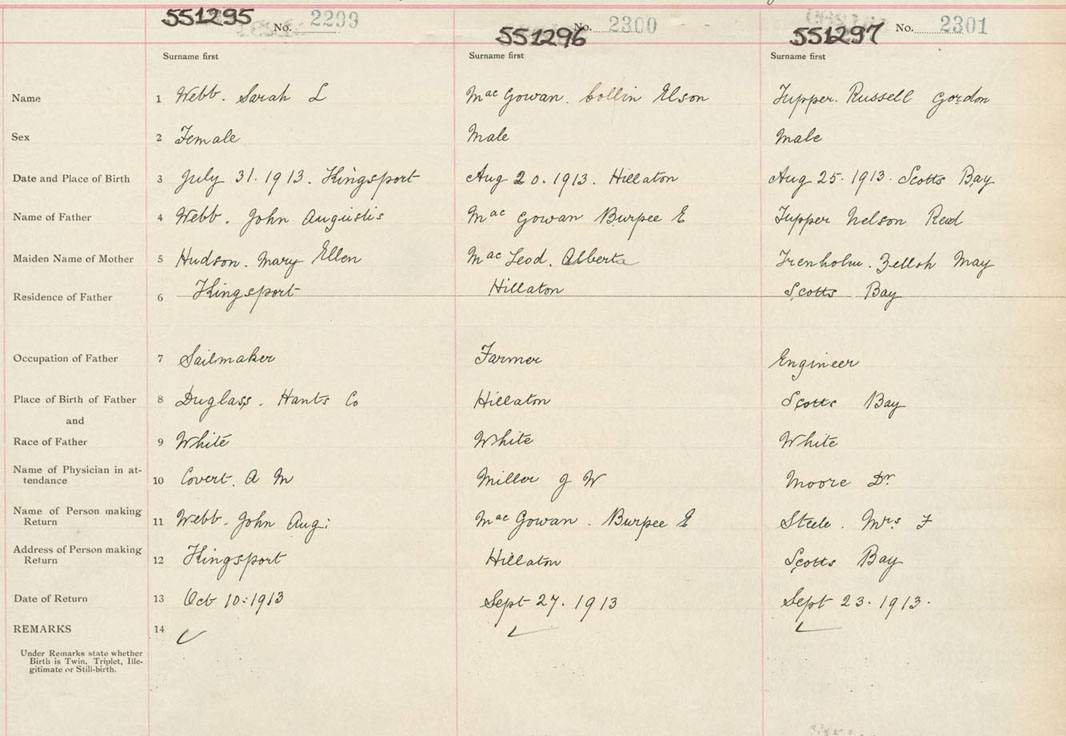 551295 No. 2299 551296 No. 2300 551297 No. 2301
Surname first Surname first Surname first
Name 1 Webb. Sarah L MacGowan. Collin Elson Tupper. Russell Gordon
Sex 2 Female Male Male
Date and Place of Birth 3 July 31. 1913. Kingsport Aug 20. 1913. Hillaton Aug 25. 1913. Scotts Bay
Name of Father 4 Webb. John Augustis MacGowan Burpee E Tupper Nelson Reed
Maiden Name of Mother 5 Hudson. Mary Ellen MacLeod. Alberta Trenholm. Zelloh May
Residence of Father 6 Kingsport Hillaton Scotts Bay
Occupation of Father 7 Sailmaker Farmer Engineer
Place of Birth of Father 8 Duglass. Hants Co Hillaton Scotts Bay
and
Race of Father 9 White White White
Name of Physician in at-
tendance 10 Covert. A M Miller J W Moore Dr
Name of Person making
Return 11 Webb. John Aug: MacGowan. Burpee E Steele. Mrs F
Address of Person making
Return 12 Kingsport Hillaton Scotts Bay
Date of Return 13 Oct 10:1913 Sept 27. 1913 Sept 23. 1913.
REMARKS 14
Under Remarks state whether
Birth is Twin, Triplet, Ille-
gitimate or Still-birth.